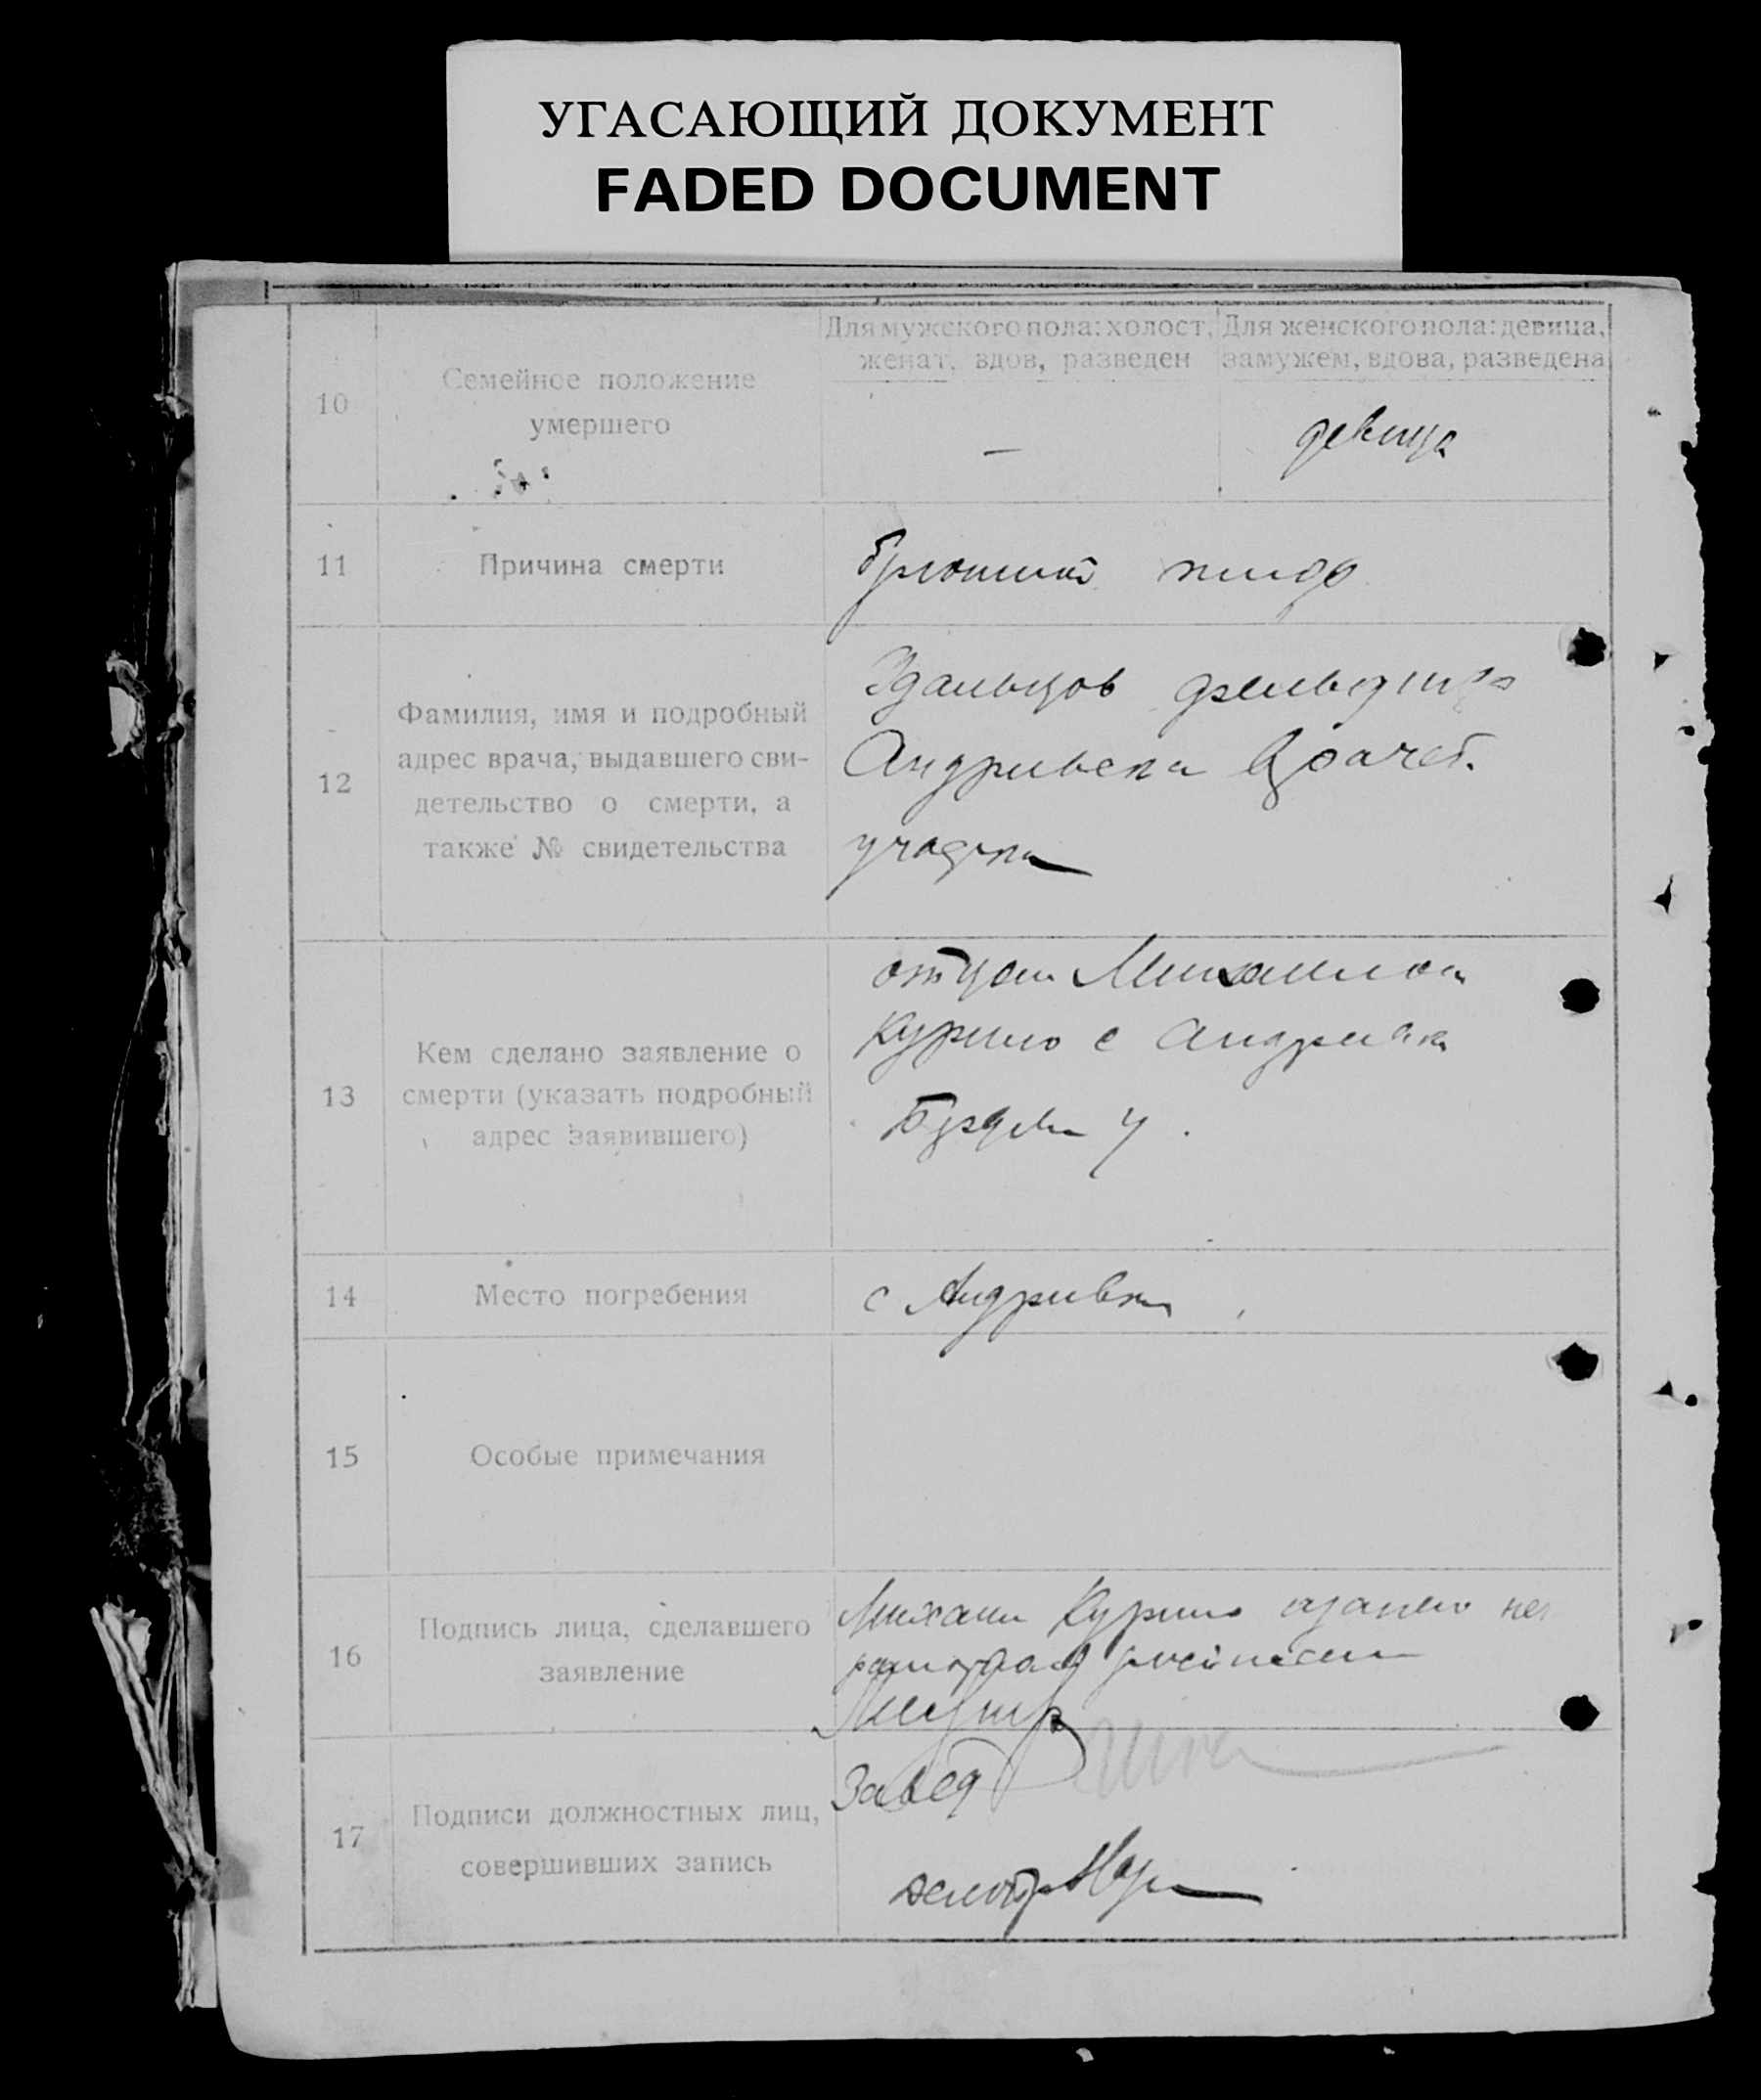 УГАСАЮЩИЙ ДОКУМЕНТ
FADED DOCUMENT
10
Семейное положение
умершего
Для мужского пола: холост,
женат, вдов, разведен
—
Для женского пола: девица,
замужем, вдова, разведена
девица
11
Причина смерти
брюшной тиф
12
Фамилия, имя и подробный
адрес врача, выдавшего сви-
детельство о смерти, а
также № свидетельства
фельдшер
Андриевска Врачеб.
участка
13
Кем сделано заявление о
смерти (указать подробный
адрес заявившего)
отцом Михаилом
Курило с Андриевка
14
Место погребения
с Андриевка
15
Особые примечания
16
Подпись лица, сделавшего
заявление
Михаил Курило
17
Подписи должностных лиц,
совершивших запись
Завед